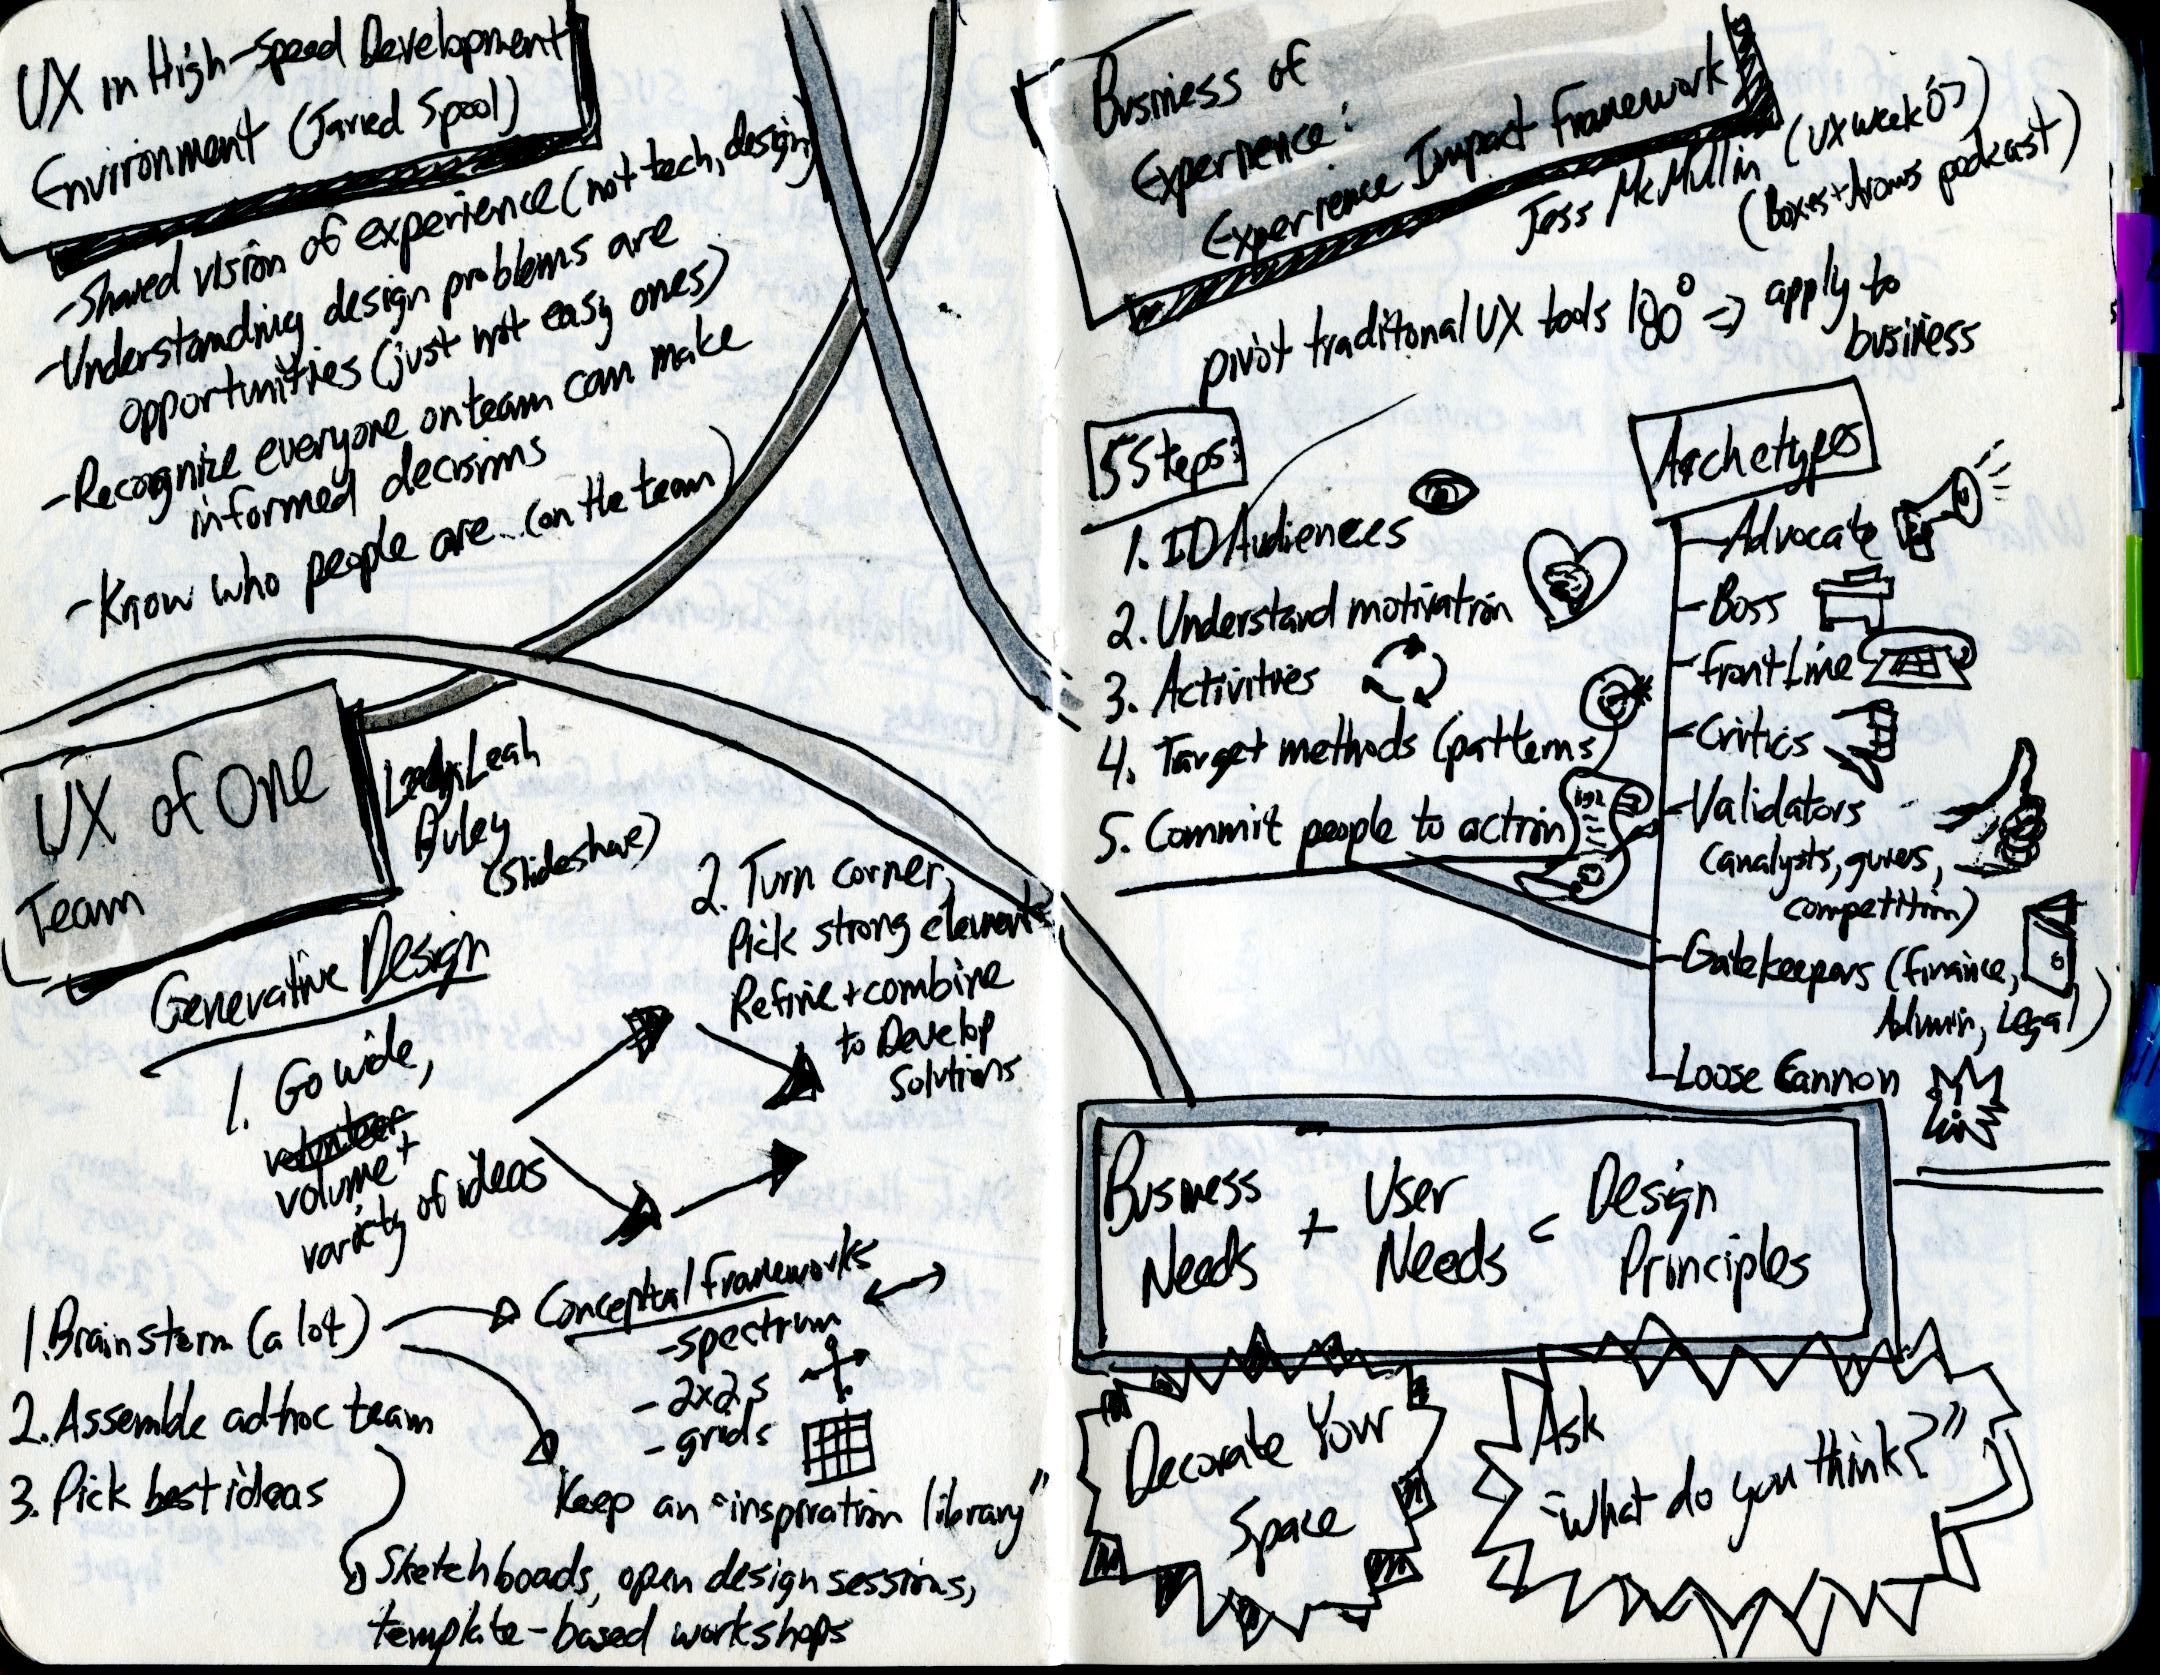 UX in High-Speed Development
Environment (Jared Spool)
-Shared vision of experience (not tech, design)
-Understanding design problems are
opportunities (just not easy ones)
-Recognize everyone on team can make
informed decisions
-Know who people are... (on the team)
UX of One
Team
Leah
Buley
(Slideshare)
Generative Design
1. Go wide,
volunteer
volume +
variety of ideas
2. Turn corner,
Pick strong element
Refine + combine
to Develop
Solutions
1. Brainstorm (a lot)
2. Assemble adhoc team
3. Pick best ideas
Conceptual Frameworks
-spectrum
- 2x2s
- grids
Keep an "inspiration library"
Sketchboads, open design sessions,
template-based workshops
Business of
Experience:
Experience Impact Framework
Jess McMullin (UXweek07)
(Boxes+Arrows podcast)
pivot traditional UX tools 180° => apply to
business
5 Steps:
1. ID Audiences
2. Understand motivation
3. Activities
4. Target methods (patterns)
5. Commit people to action
Archetypes
-Advocate
-Boss
-Front Line
-Critics
-Validators
(analysts, gurus,
competition)
-Gatekeepers (finance,
Admin, Legal)
-Loose Cannon
Business
Needs
+
User
Needs
=
Design
Principles
Decorate Your
Space
Ask
"What do you think?"